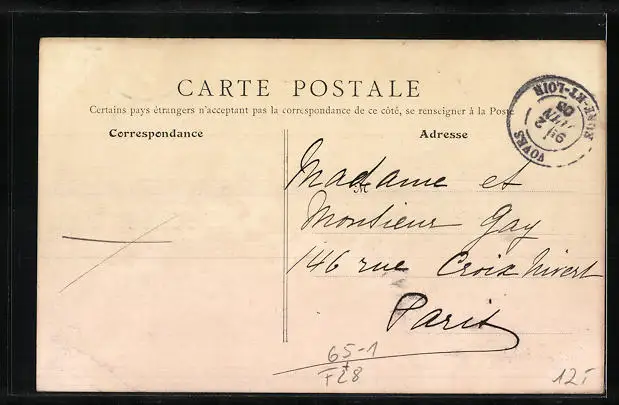 CARTE POSTALE
Certains pays étrangers n'acceptant pas la correspondance de ce côté, se renseigner à la Poste
Correspondance
Adresse
M
Madame et
Monsieur Gay
146 rue Croix Nivert
Paris
VOVES
EURE-ET-LOIR
65-1
F28
12,-